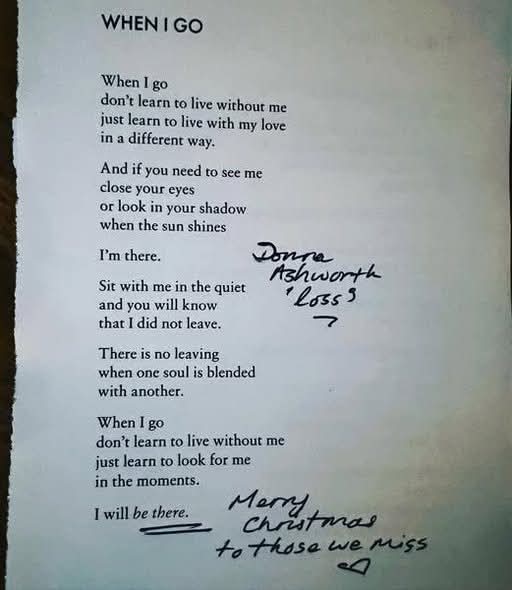 WHEN I GO
When I go
don't learn to live without me
just learn to live with my love
in a different way.
And if you need to see me
close your eyes
or look in your shadow
when the sun shines
I'm there.
Donna
Ashworth
'loss'
Sit with me in the quiet
and you will know
that I did not leave.
There is no leaving
when one soul is blended
with another.
When I go
don't learn to live without me
just learn to look for me
in the moments.
I will be there.
Merry
Christmas
to those we miss